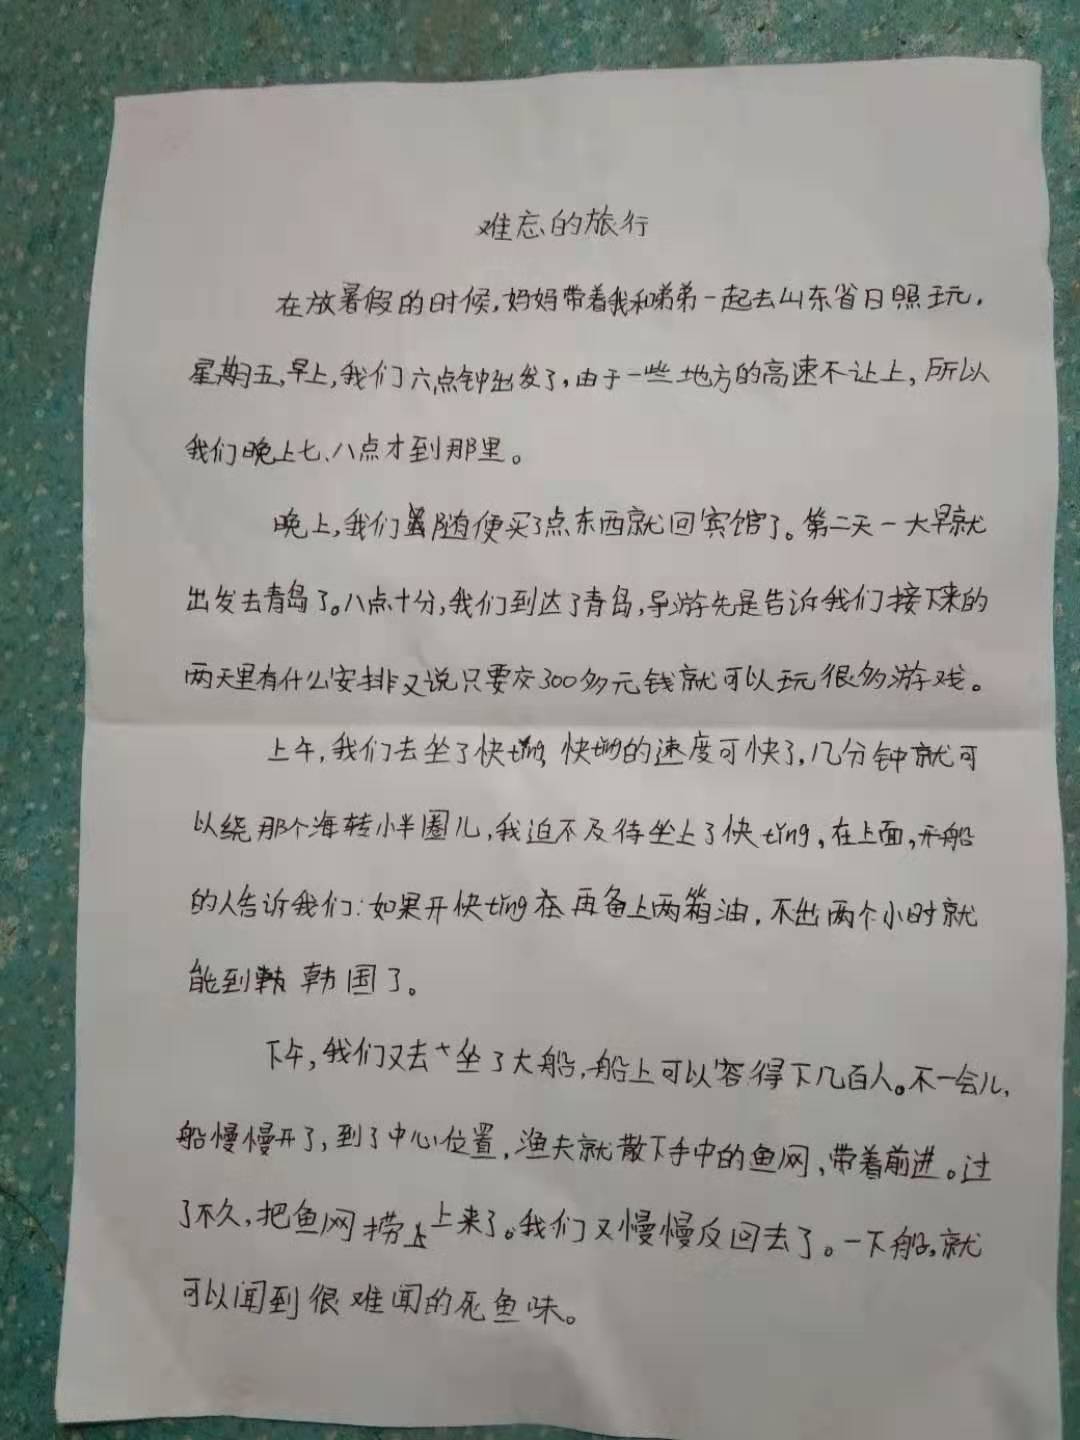 难忘的旅行
在放暑假的时候,妈妈带着我和弟弟一起去山东省日照玩,
星期五,早上,我们六点钟出发了,由于一些地方的高速不让上,所以
我们晚上七、八点才到那里。
晚上,我们随便买了点东西就回宾馆了。第二天一大早就
出发去青岛了。八点十分,我们到达了青岛,导游先是告诉我们接下来的
两天里有什么安排又说只要交300多元钱就可以玩很多游戏。
上午,我们去坐了快ting,快ting的速度可快了,几分钟就可
以绕那个海转小半圈儿,我迫不及待坐上了快ting,在上面,开船
的人告诉我们:如果开快ting在再备上两箱油,不出两个小时就
能到韩国了。
下午,我们又去坐了大船,船上可以容得下几百人。不一会儿,
船慢慢开了,到了中心位置,渔夫就散下手中的鱼网,带着前进。过
了不久,把鱼网捞上来了。我们又慢慢反回去了。一下船,就
可以闻到很难闻的死鱼味。